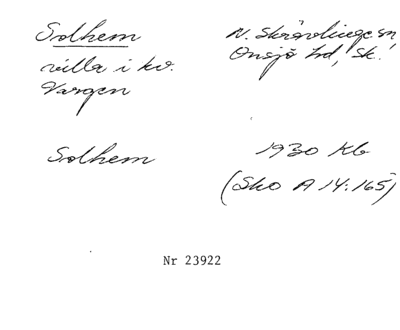 Solhem
N. Skrävlinge sn,
villa i kv.
Onsjö hd, Sk.
Vargen
Solhem
1930 Kb
(Sko A 14:165)
Nr 23922